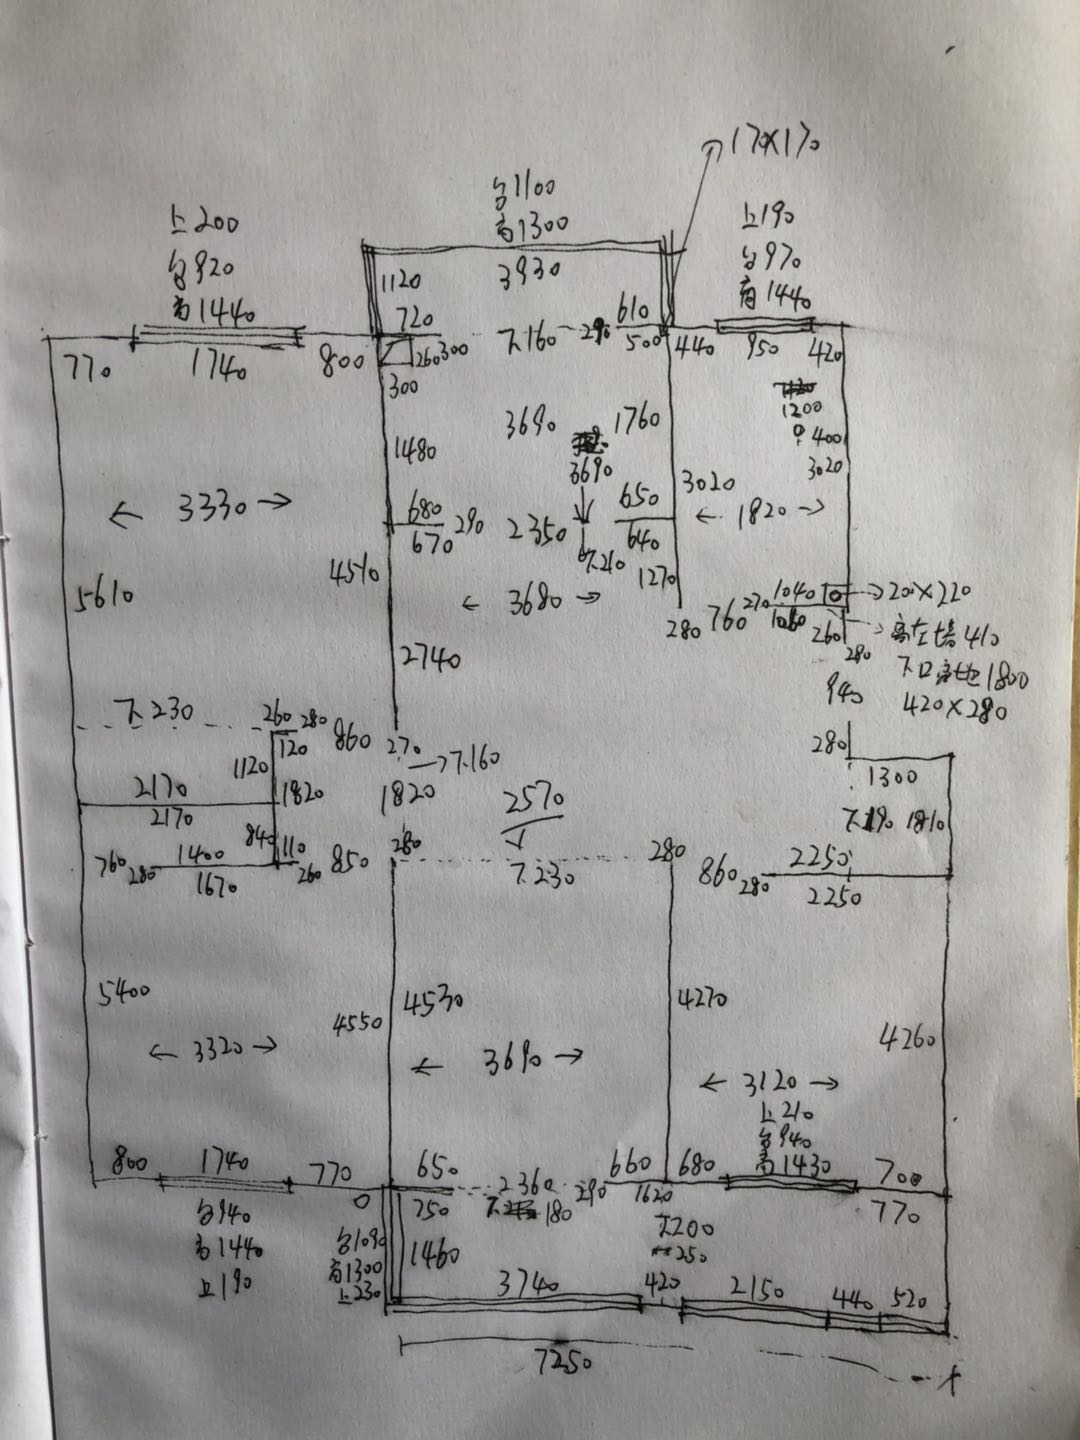 170×170
台1100
高1300
上200
台920
高1440
上190
台970
高1440
1120
3930
720
下160
290
610
500
770
1740
800
260
300
300
440
950
420
1200
400
3020
3690
1760
1480
3690
3330
680
670
290
2350
650
640
3020
1820
下210
5610
4510
3680
1270
280
760
270
1040
1060
200×220
260
高左墙410
280
下口高地1800
420×280
2740
940
280
下230
260
280
120
860
270
下160
1120
1820
1820
2570
1300
2170
2170
下190
1810
840
110
760
280
1400
1670
260
850
280
下230
280
860
280
2250
2250
5400
4550
4530
4270
4260
3320
3690
3120
上210
台940
高1430
800
1740
770
650
2360
290
660
1620
680
700
770
0
750
180
台940
高1440
上190
台1090
高1300
上230
1460
下200
250
3740
420
2150
440
520
7250